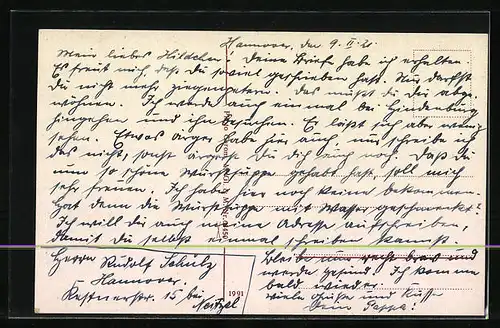 Hannover, den 9. II. 21.
Mein liebes Hildchen! Deine Brief habe ich erhalten.
Es freut mich, daß Du so viel geschrieben hast. Nur darfst
Du nicht mehr Du dir abge-
wöhnen. Ich werde auch einmal bei Hindenburg
hingehen und ihn besuchen. Es läßt sich aber wenig
sehen. Etwas ärger habe hier auch, nur schreibe ich
das nicht, sonst ärgerst Du Dich auch noch. Daß Du
nun so schöne Wurstsuppe gehabt hast, soll mich
sehr freuen. Ich habe hier noch keine bekommen.
Hat denn die Wurstsuppe mit Wasser geschmeckt?
Ich will dir auch meine Adresse aufschreiben,
damit Du selbst einmal schreiben kannst.
Herrn Rudolf Schulz
Hannover,
Kestnerstr. 15 bei
Bleibe nur recht brav und
werde gesund. Ich komme
bald wieder.
Viele Grüße und Küsse
Dein Pappa!
1991